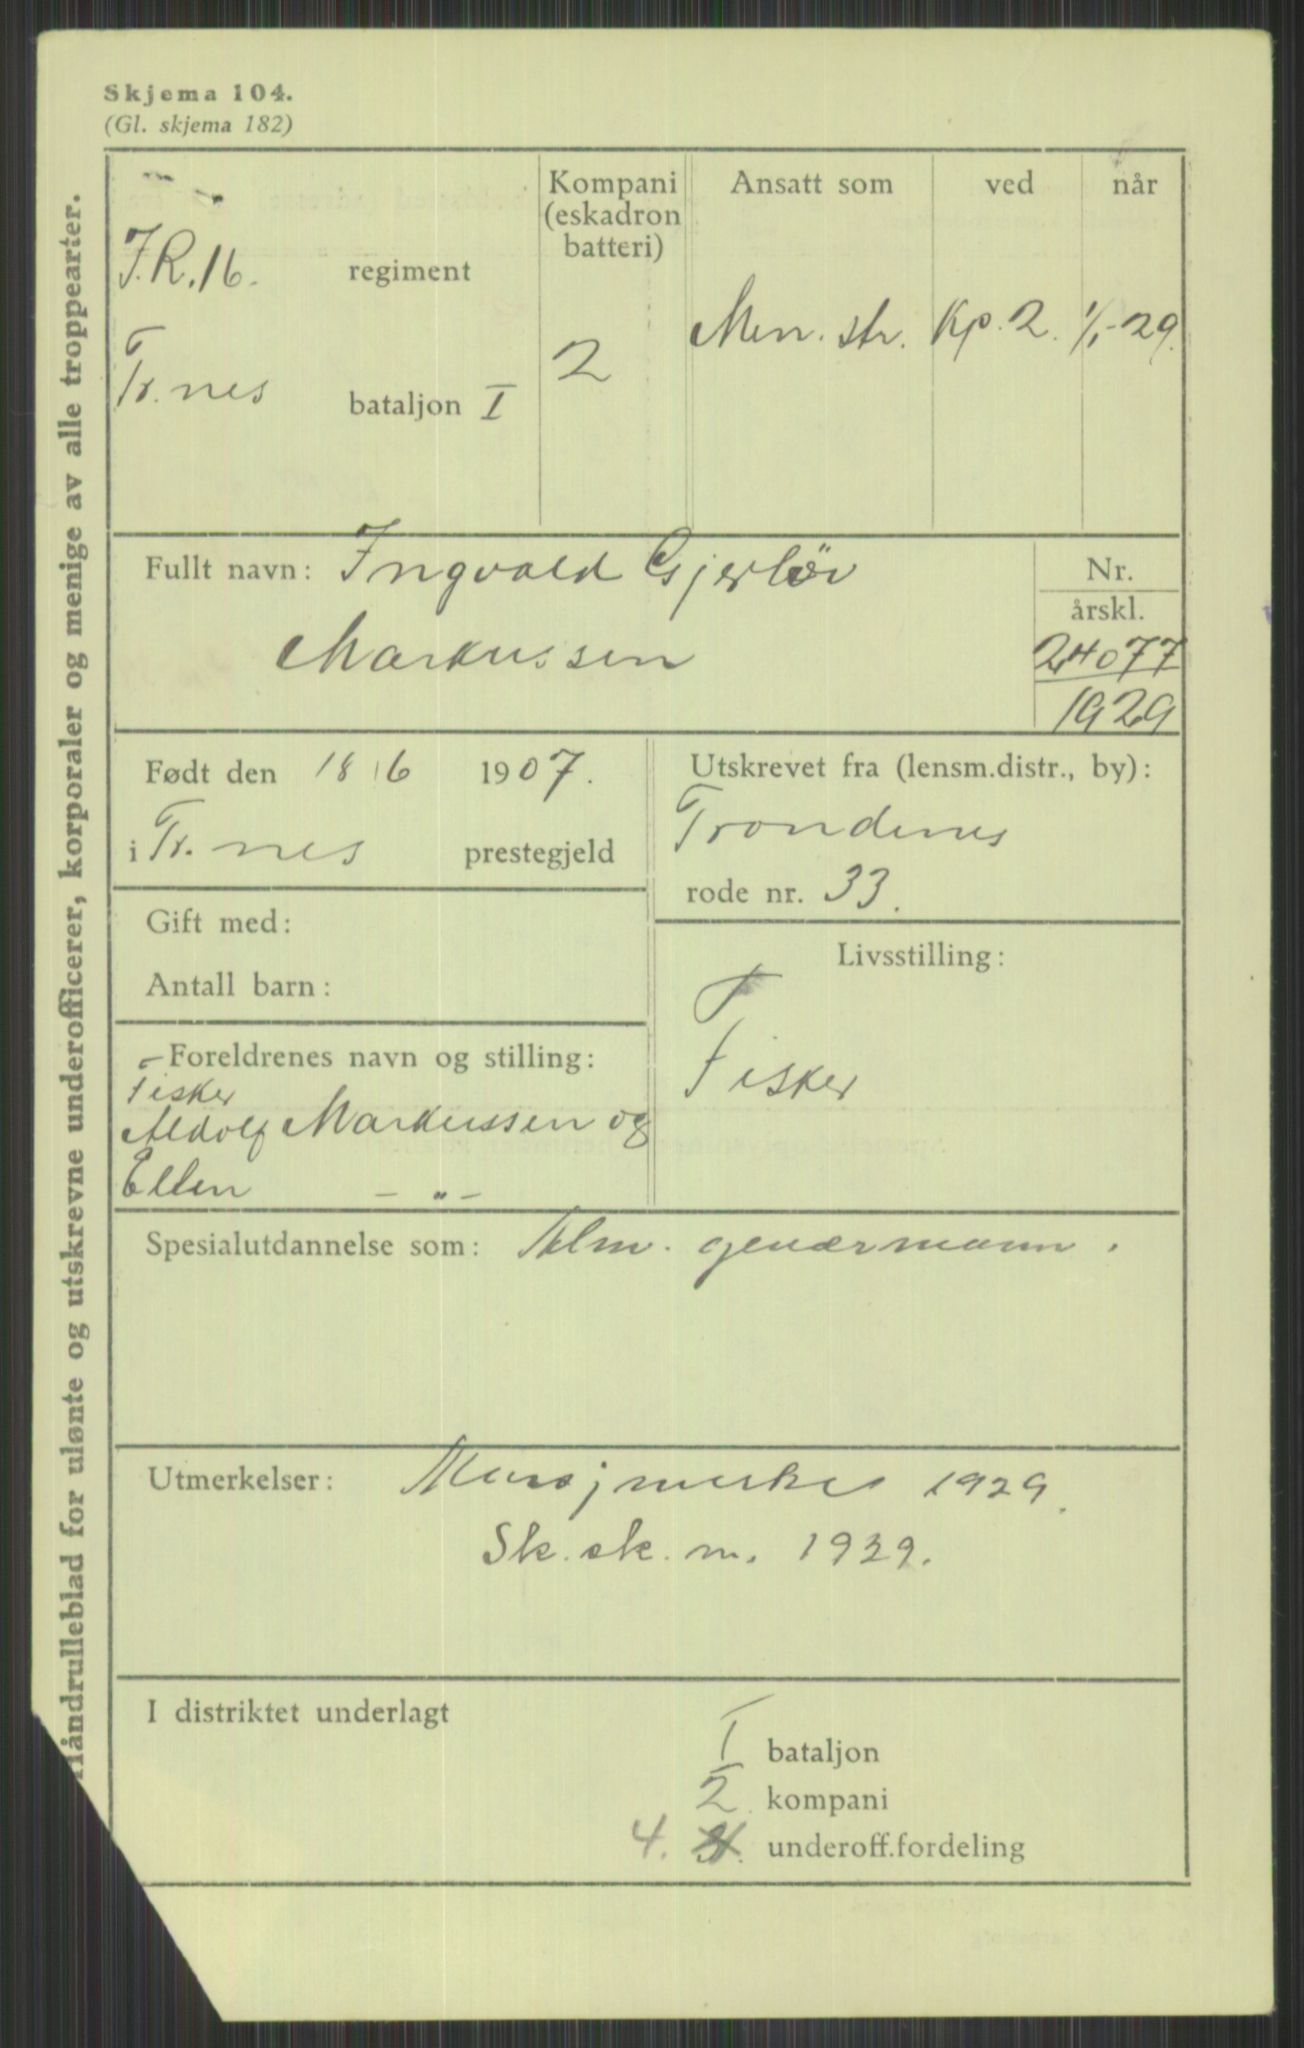 Skjema 104.
(Gl. skjema 182)
Håndrulleblad for ulønte og utskrevne underofficerer, korporaler og menige av alle troppearter.
J.R.16. regiment
Tr.nes bataljon I
Kompani
(eskadron
batteri)
2
Ansatt som ved når
Men. str. Kp. 2. 1/1-29.
Fullt navn: Ingvald Gjerløv
Markussen
Nr.
årskl.
24077
1929
Født den 18/6 1907.
i Tr.nes prestegjeld
Utskrevet fra (lensm.distr., by):
Trondenes
rode nr. 33.
Gift med:
Antall barn:
Livsstilling:
Fisker
Foreldrenes navn og stilling:
Fisker
Aldolf Markussen og
Ellen - „ -
Spesialutdannelse som: Alm. geværmann.
Utmerkelser: Marsjmerket 1929.
Sk. sk. m. 1929.
I distriktet underlagt
I bataljon
2 kompani
4. underoff.fordeling